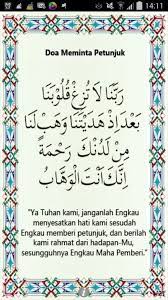 14:11
Doa Meminta Petunjuk
رَبَّنَا لَا تُزِغْ قُلُوْبَنَا
بَعْدَ اِذْ هَدَيْتَنَا وَهَبْ لَنَا
مِنْ لَدُنْكَ رَحْمَةً
اِنَّكَ اَنْتَ الْوَهَّابُ
"Ya Tuhan kami, janganlah Engkau
menyesatkan hati kami sesudah
Engkau memberi petunjuk, dan berilah
kami rahmat dari hadapan-Mu,
sesungguhnya Engkau Maha Pemberi."